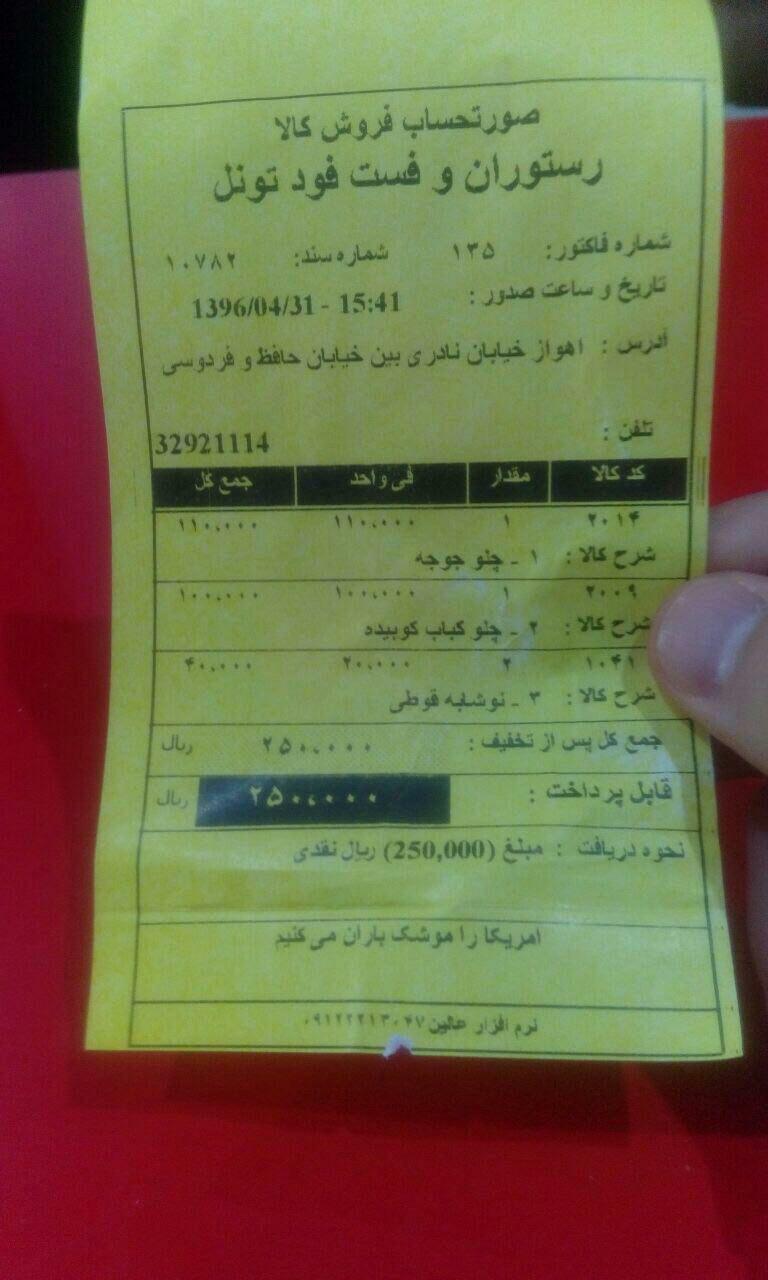 صورتحساب فروش کالا
رستوران و فست فود تونل
شماره فاکتور: ۱۳۵ شماره سند: ۱۰۷۸۲
تاریخ و ساعت صدور : 1396/04/31 - 15:41
آدرس : اهواز خیابان نادری بین خیابان حافظ و فردوسی
تلفن : 32921114
کد کالا مقدار فی واحد جمع کل
۲۰۱۴ ۱ ۱۱۰،۰۰۰ ۱۱۰،۰۰۰
شرح کالا : ۱ - چلو جوجه
۲۰۰۹ ۱ ۱۰۰،۰۰۰ ۱۰۰،۰۰۰
شرح کالا : ۲ - چلو کباب کوبیده
۱۰۴۱ ۲ ۲۰،۰۰۰ ۴۰،۰۰۰
شرح کالا : ۳ - نوشابه قوطی
جمع کل پس از تخفیف : ۲۵۰،۰۰۰ ریال
قابل پرداخت : ۲۵۰،۰۰۰ ریال
نحوه دریافت : مبلغ (250,000) ریال نقدی
امریکا را موشک باران می کنیم
نرم افزار عالین ۰۹۱۲۲۲۱۳۰۴۷